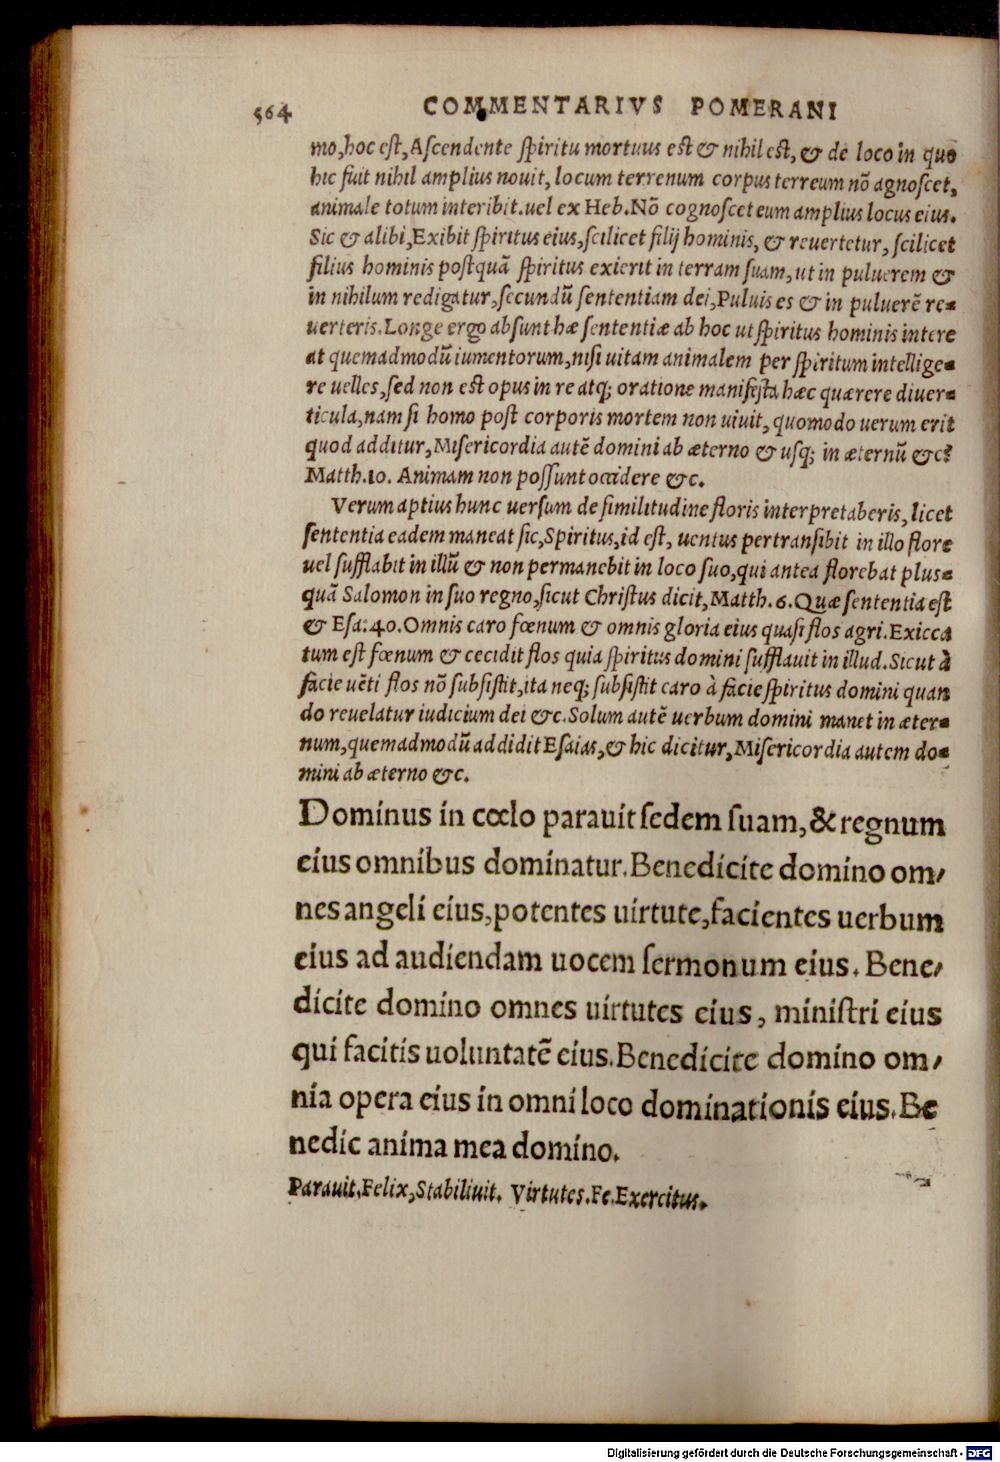 564 COMMENTARIVS POMERANI
mo,hoc eſt,Aſcendente ſpiritu mortuus eſt & nihil eſt, & de loco in quo
hic fuit nihil amplius nouit, locum terrenum corpus terreum nō agnoſcet,
animale totum interibit.uel ex Heb.Nō cognoſcet eum amplius locus eius.
Sic & alibi,Exibit ſpiritus eius,ſcilicet filij hominis, & reuertetur, ſcilicet
filius hominis poſtquā ſpiritus exierit in terram ſuam,ut in puluerem &
in nihilum redigatur,ſecundū ſententiam dei,Puluis es & in puluerē re⸗
uerteris.Longe ergo abſunt hæ ſententiæ ab hoc ut ſpiritus hominis intere
at quemadmodū iumentorum,niſi uitam animalem per ſpiritum intellige⸗
re uelles,ſed non eſt opus in re atq; oratione manifeſta hæc quærere diuer⸗
ticula,nam ſi homo poſt corporis mortem non uiuit, quomodo uerum erit
quod additur,Miſericordia autē domini ab æterno & uſq; in æternū &c?
Matth.10. Animam non poſſunt occidere &c.
Verum aptius hunc uerſum de ſimilitudine floris interpretaberis, licet
ſententia eadem maneat ſic,Spiritus,id eſt, uentus pertranſibit in illo flore
uel ſufflabit in illū & non permanebit in loco ſuo,qui antea florebat pluſ⸗
quā Salomon in ſuo regno,ſicut Chriſtus dicit,Matth.6.Quæ ſententia eſt
& Eſa:40.Omnis caro fœnum & omnis gloria eius quaſi flos agri.Exicca
tum eſt fœnum & cecidit flos quia ſpiritus domini ſufflauit in illud.Sicut à
facie uēti flos nō ſubſiſtit,ita neq; ſubſiſtit caro à facie ſpiritus domini quan
do reuelatur iudicium dei &c.Solum autē uerbum domini manet in æter⸗
num,quemadmodū addidit Eſaias,& hic dicitur,Miſericordia autem do⸗
mini ab æterno &c.
Dominus in cœlo parauit ſedem ſuam,& regnum
eius omnibus dominatur.Benedicite domino om/
nes angeli eius,potentes uirtute,facientes uerbum
eius ad audiendam uocem ſermonum eius. Bene/
dicite domino omnes uirtutes eius, miniſtri eius
qui facitis uoluntatē eius.Benedicite domino om/
nia opera eius in omni loco dominationis eius.Be
nedic anima mea domino.
Parauit.Felix,Stabiliuit. Virtutes.Fe.Exercitus.
Digitalisierung gefördert durch die Deutsche Forschungsgemeinschaft - DFG